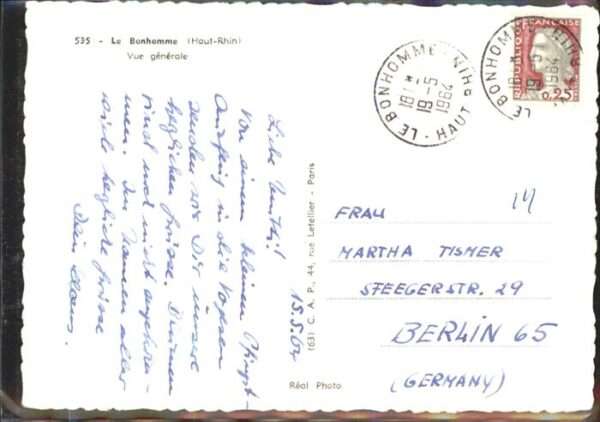 535 - Le Bonhomme (Haut-Rhin)
Vue générale
LE BONHOMME HT RHIN
18H
19-5
1964
HAUT
LE BONHOMME
18H
19-5
1964
RÉPUBLIQUE FRANÇAISE
0,25
Liebe
Von einem kleinen Pfingst-
Ausflug in die Vogesen
senden wir Dir unsere
herzlichen Grüsse. Drinnen
sind und nicht
men. Im Namen aller
viele herzliche Grüsse
Dein Claus.
15.5.64
(63) C. A. P., 44, rue Letellier - Paris
Réal Photo
14
FRAU
MARTHA TISMER
STEEGERSTR. 29
BERLIN 65
(GERMANY)